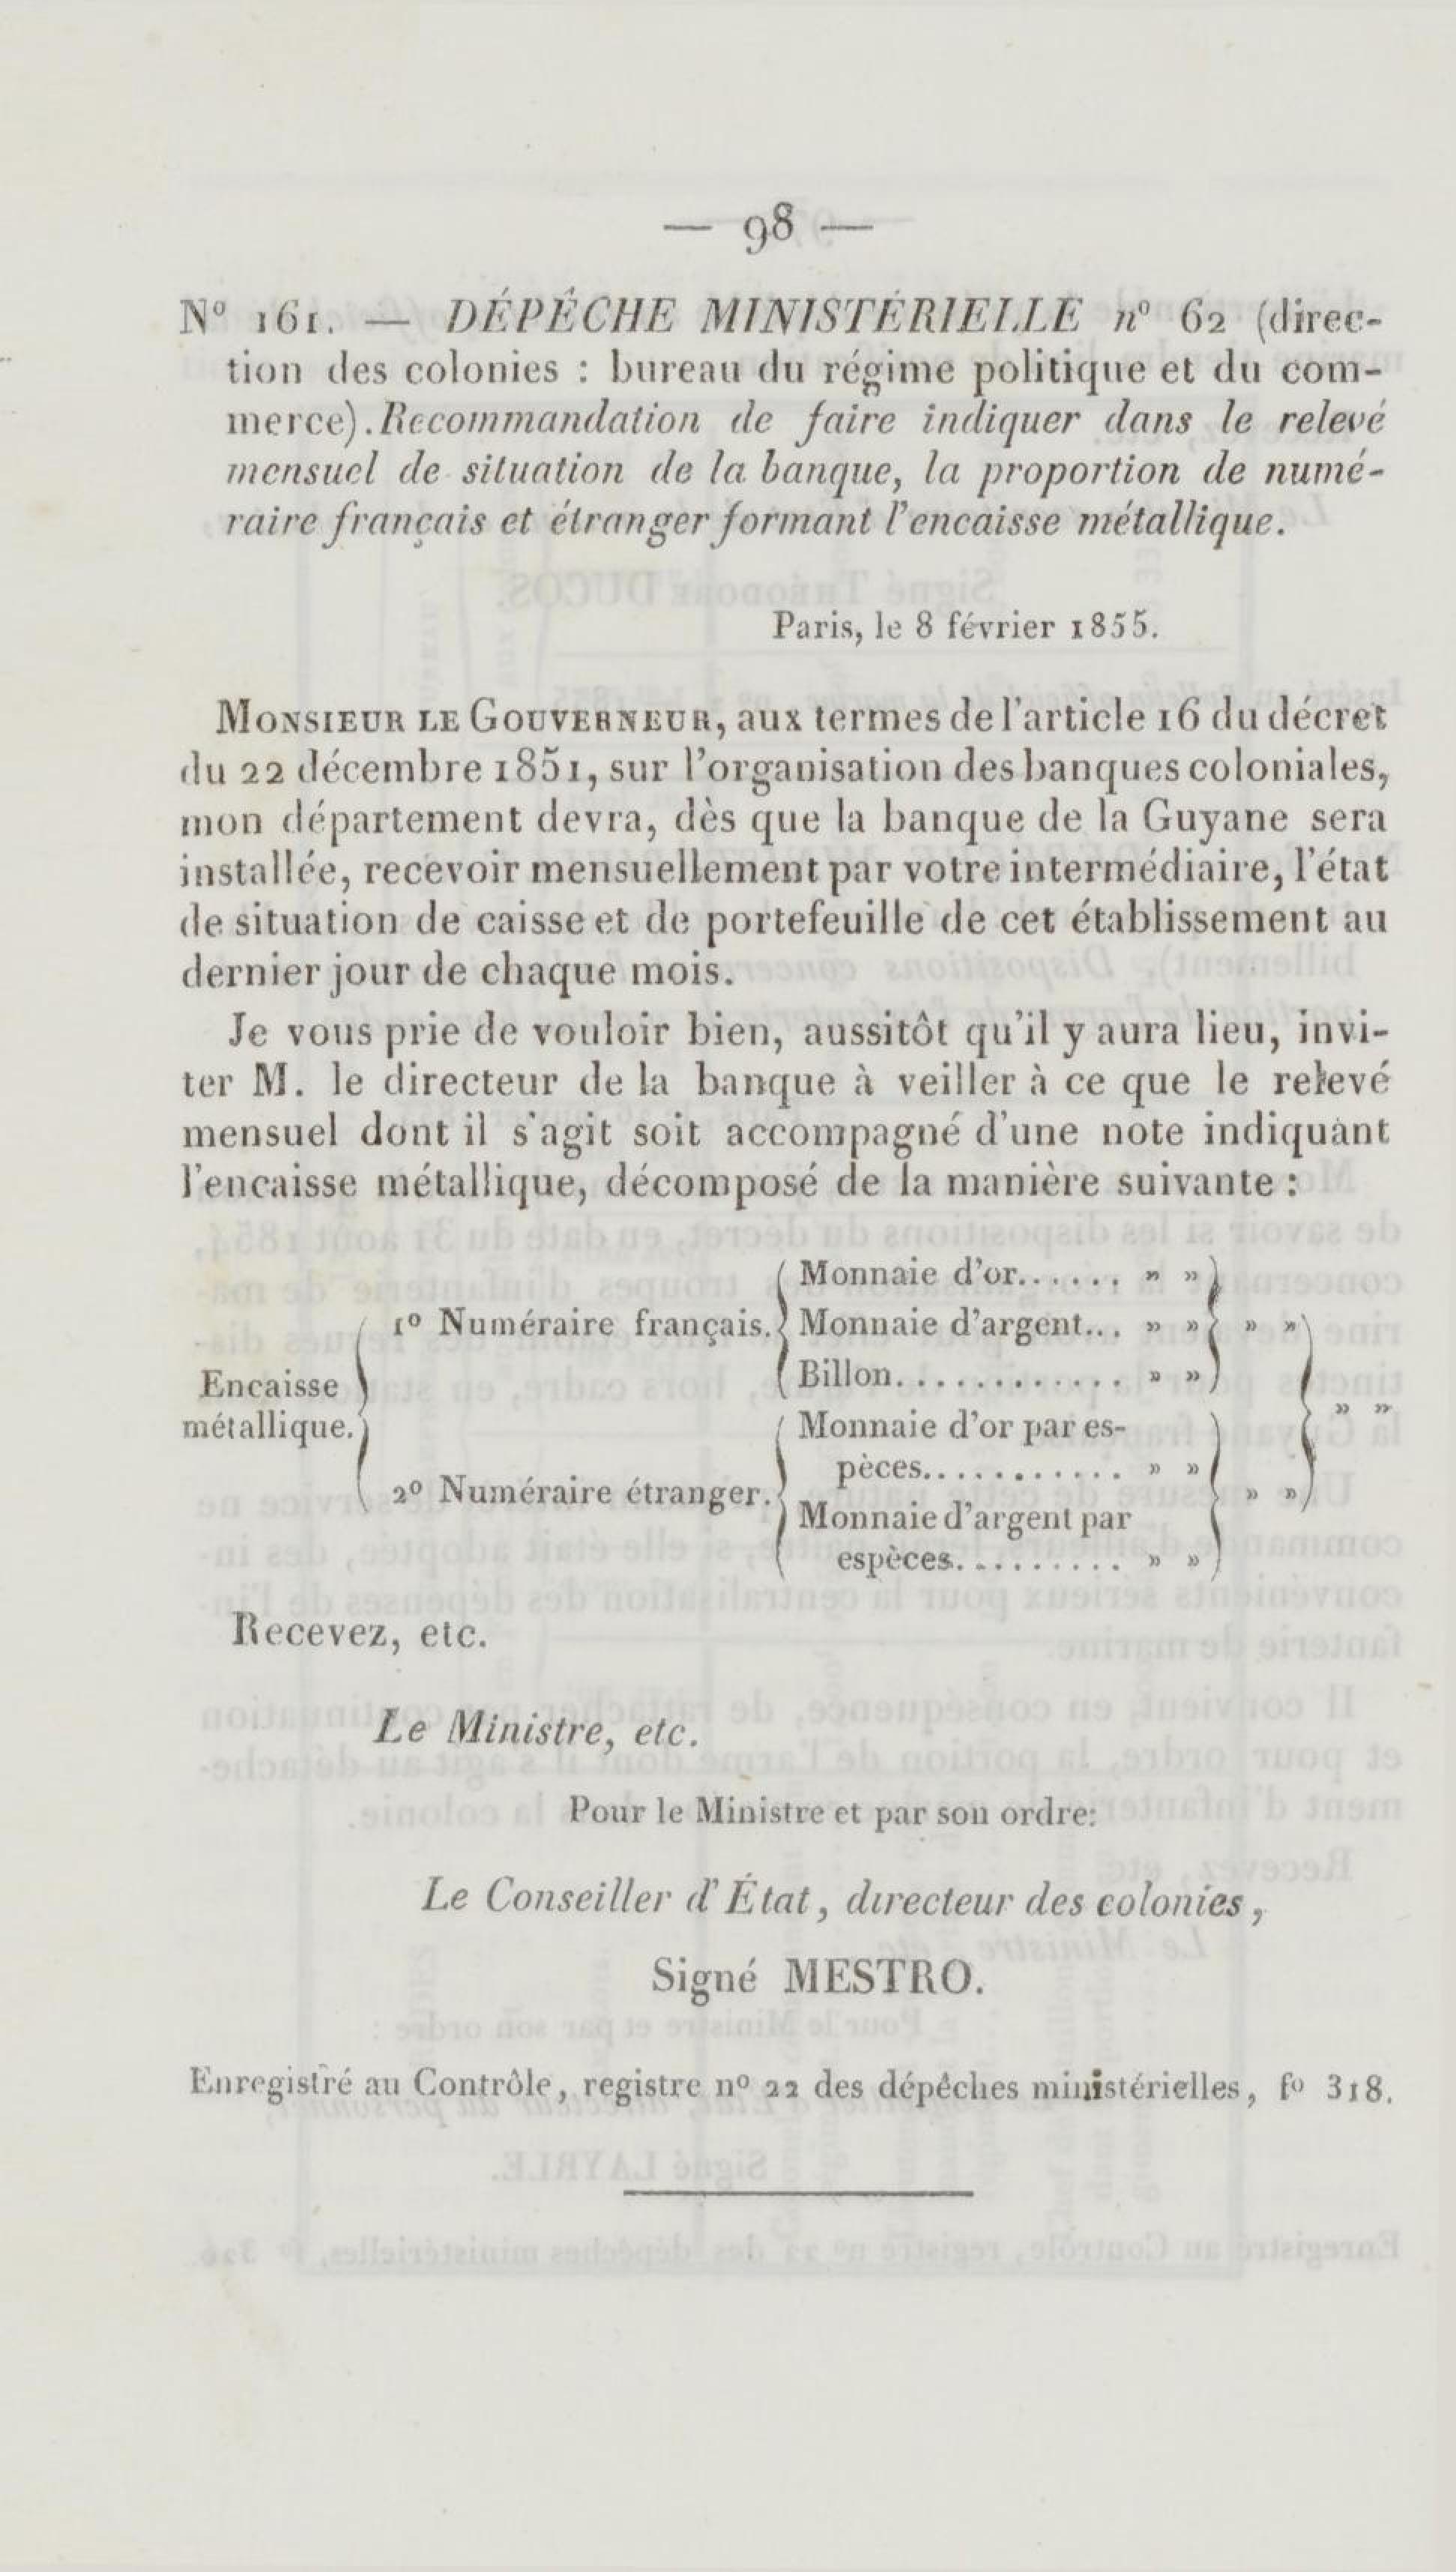 — 98 —
N° 161. — DÉPÊCHE MINISTÉRIELLE n° 62 (direc-
tion des colonies : bureau du régime politique et du com-
merce). Recommandation de faire indiquer dans le relevé
mensuel de situation de la banque, la proportion de numé-
raire français et étranger formant l'encaisse métallique.
Paris, le 8 février 1855.
MONSIEUR LE GOUVERNEUR, aux termes de l'article 16 du décret
du 22 décembre 1851, sur l'organisation des banques coloniales,
mon département devra, dès que la banque de la Guyane sera
installée, recevoir mensuellement par votre intermédiaire, l'état
de situation de caisse et de portefeuille de cet établissement au
dernier jour de chaque mois.
Je vous prie de vouloir bien, aussitôt qu'il y aura lieu, invi-
ter M. le directeur de la banque à veiller à ce que le relevé
mensuel dont il s'agit soit accompagné d'une note indiquant
l'encaisse métallique, décomposé de la manière suivante :
Encaisse
métallique.
1° Numéraire français.
Monnaie d'or...... » »
Monnaie d'argent... » »
Billon............ » »
» »
2° Numéraire étranger.
Monnaie d'or par es-
pèces............ » »
Monnaie d'argent par
espèces.......... » »
» »
» »
Recevez, etc.
Le Ministre, etc.
Pour le Ministre et par son ordre:
Le Conseiller d'État, directeur des colonies,
Signé MESTRO.
Enregistré au Contrôle, registre n° 22 des dépêches ministérielles, f° 318.